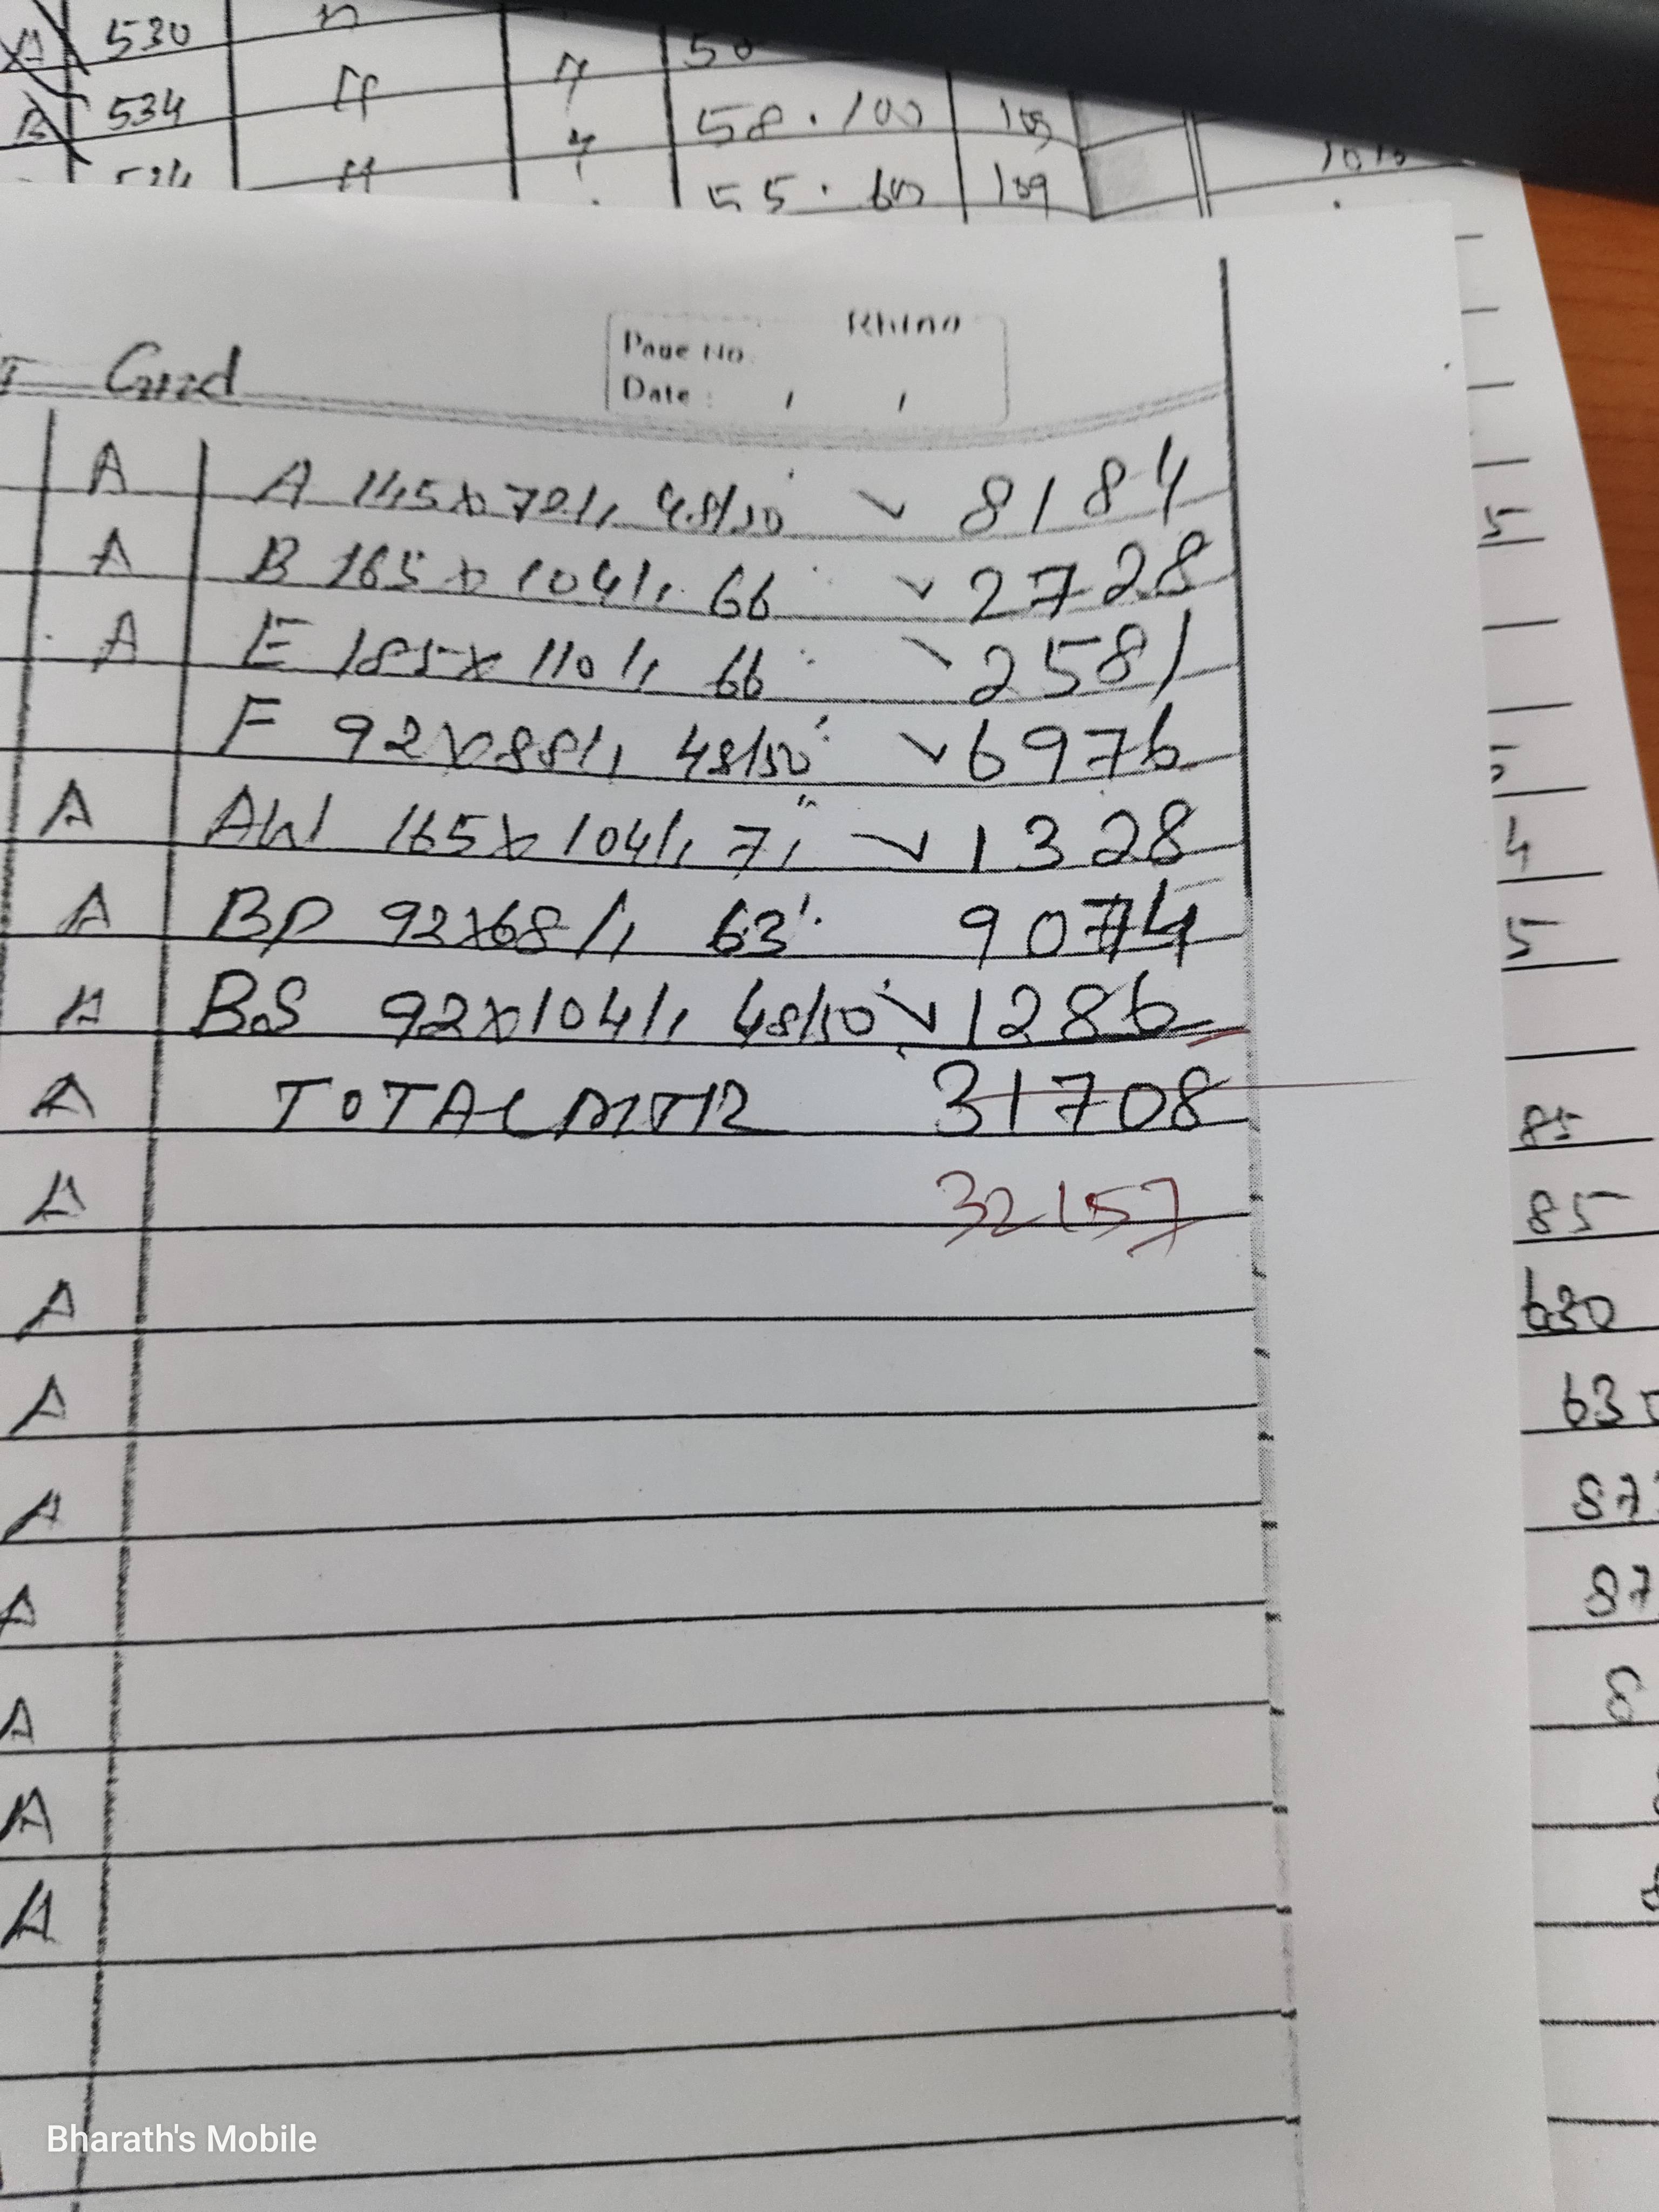 A 530
B 534
58.100 109
534
55.600 109
Grad
Rhino
Page No.
Date : / /
A A 145x72/, 48/50" 8184
A B 165x104/, 66" 2728
A E 185x110/, 66" 2581
F 92x88/, 48/50" 6976
A AW 165x104/, 71" 1328
A BP 92x68/, 63" 9074
A BS 92x104/, 48/50" 1286
A TOTAL MTR 31708
A 32157
A
A
A
A
A
A
A
5
5
4
5
85
85
630
630
87
87
8
Bharath's Mobile